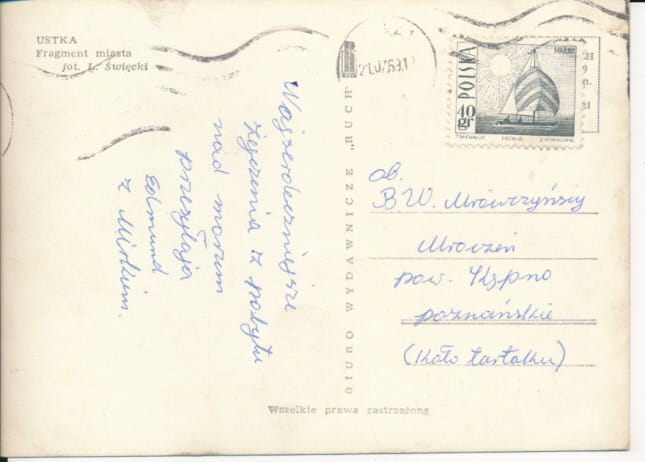 USTKA
Fragment miasta
fot. L. Święcki
Najserdeczniejsze
życzenia z pobytu
nad morzem
przesyłają
Edmund
z Mirkiem.
BIURO WYDAWNICZE „RUCH”
POLSKA
40 gr
ob.
B W. Mrówczyńscy
Mroczeń
pow. Kępno
poznańskie
(Koło tartaku)
Wszelkie prawa zastrzeżone